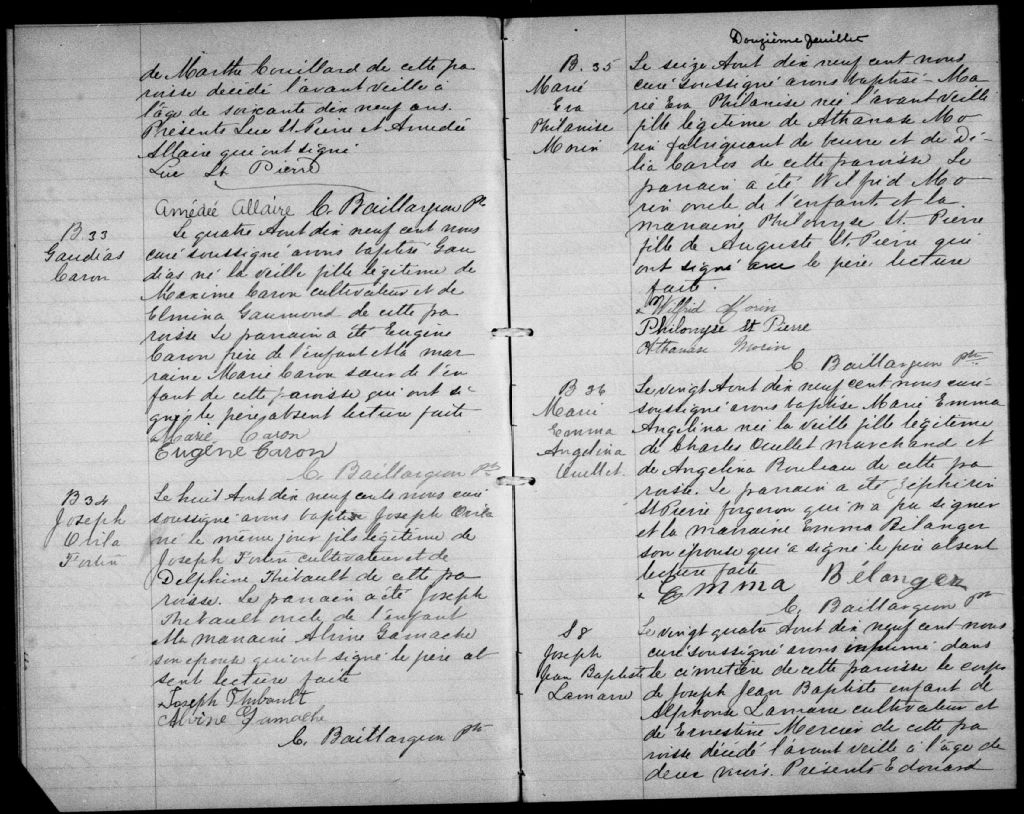 de Marthe Couillard de cette pa
roisse décédé l'avant veille à
l'âge de soixante dix neuf ans.
Présents Luc St Pierre et Amédée
Allaire qui ont signé
Luc St Pierre
Amédée Allaire C. Baillargeon Ptre
B 33
Gaudias
Caron
Le quatre Aout dix neuf cent nous
curé soussigné avons baptisé Gau
dias né la veille fille légitime de
Maxime Caron cultivateur et de
Elmina Gaumond de cette pa
roisse Le parrain a été Eugène
Caron frère de l'enfant et la mar
raine Marie Caron sœur de l'en
fant de cette paroisse qui ont si
gné, le père absent lecture faite
Marie Caron
Eugène Caron
C. Baillargeon Ptre
B 34
Joseph
Ovila
Fortin
Le huit Aout dix neuf cents nous curé
soussigné avons baptisé Joseph Ovila
né le même jour fils légitime de
Joseph Fortin cultivateur et de
Delphine Thibault de cette pa
roisse. Le parrain a été Joseph
Thibault oncle de l'enfant
et la marraine Alvine Gamache
son épouse qui ont signé le père ab
sent lecture faite
Joseph Thibault
Alvine Gamache
C. Baillargeon Ptre
Douzième feuillet
B. 35
Marie
Eva
Philanise
Morin
Le seize Aout dix neuf cent nous
curé soussigné avons baptisé Ma
rie Eva Philanise née l'avant veille
fille légitime de Athanase Mo
rin fabriquant de beurre et de Dé
lia Carlos de cette paroisse Le
parrain a été Wilfrid Mo
rin oncle de l'enfant et la
marraine Philonyse St Pierre
fille de Auguste St. Pierre qui
ont signé avec le père lecture
faite.
Wilfrid Morin
Philonyse St Pierre
Athanase Morin
C. Baillargeon ptre
B 36
Marie
Emma
Angelina
Ouellet
Le vingt Aout dix neuf cent nous curé
soussigné avons baptisé Marie Emma
Angelina née la veille fille légitime
de Charles Ouellet marchand et
de Angelina Rouleau de cette pa
roisse. Le parrain a été Zéphirin
St Pierre forgeron qui n'a pu signer
et la marraine Emma Bélanger
son épouse qui a signé le père absent
lecture faite
Emma Bélanger
C. Baillargeon Ptre
S 8
Joseph
Jean Baptiste
Lamarre
Le vingt quatre Aout dix neuf cent nous
curé soussigné avons inhumé dans
le cimetière de cette paroisse le corps
de Joseph Jean Baptiste enfant de
Alphonse Lamarre cultivateur et
de Ernestine Mercier de cette pa
roisse décédé l'avant veille à l'âge de
deux mois. Présents Edouard